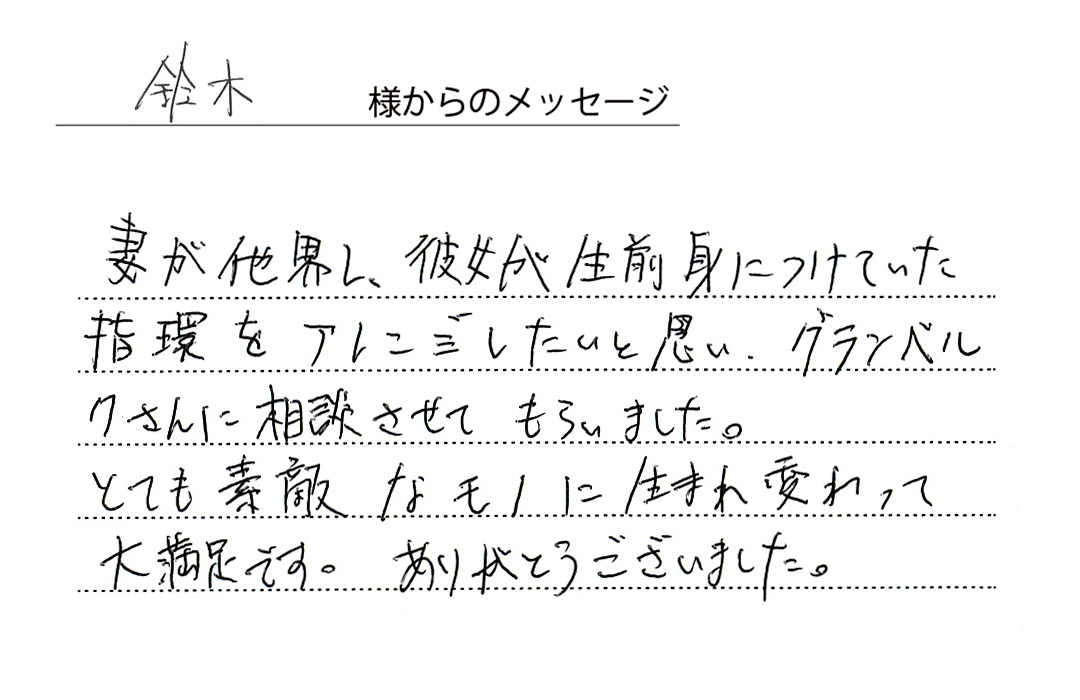 鈴木 様からのメッセージ
妻が他界し、彼女が生前身につけていた
指環をアレンジしたいと思い、グランベル
クさんに相談させてもらいました。
とても素敵なモノに生まれ変わって
大満足です。ありがとうございました。